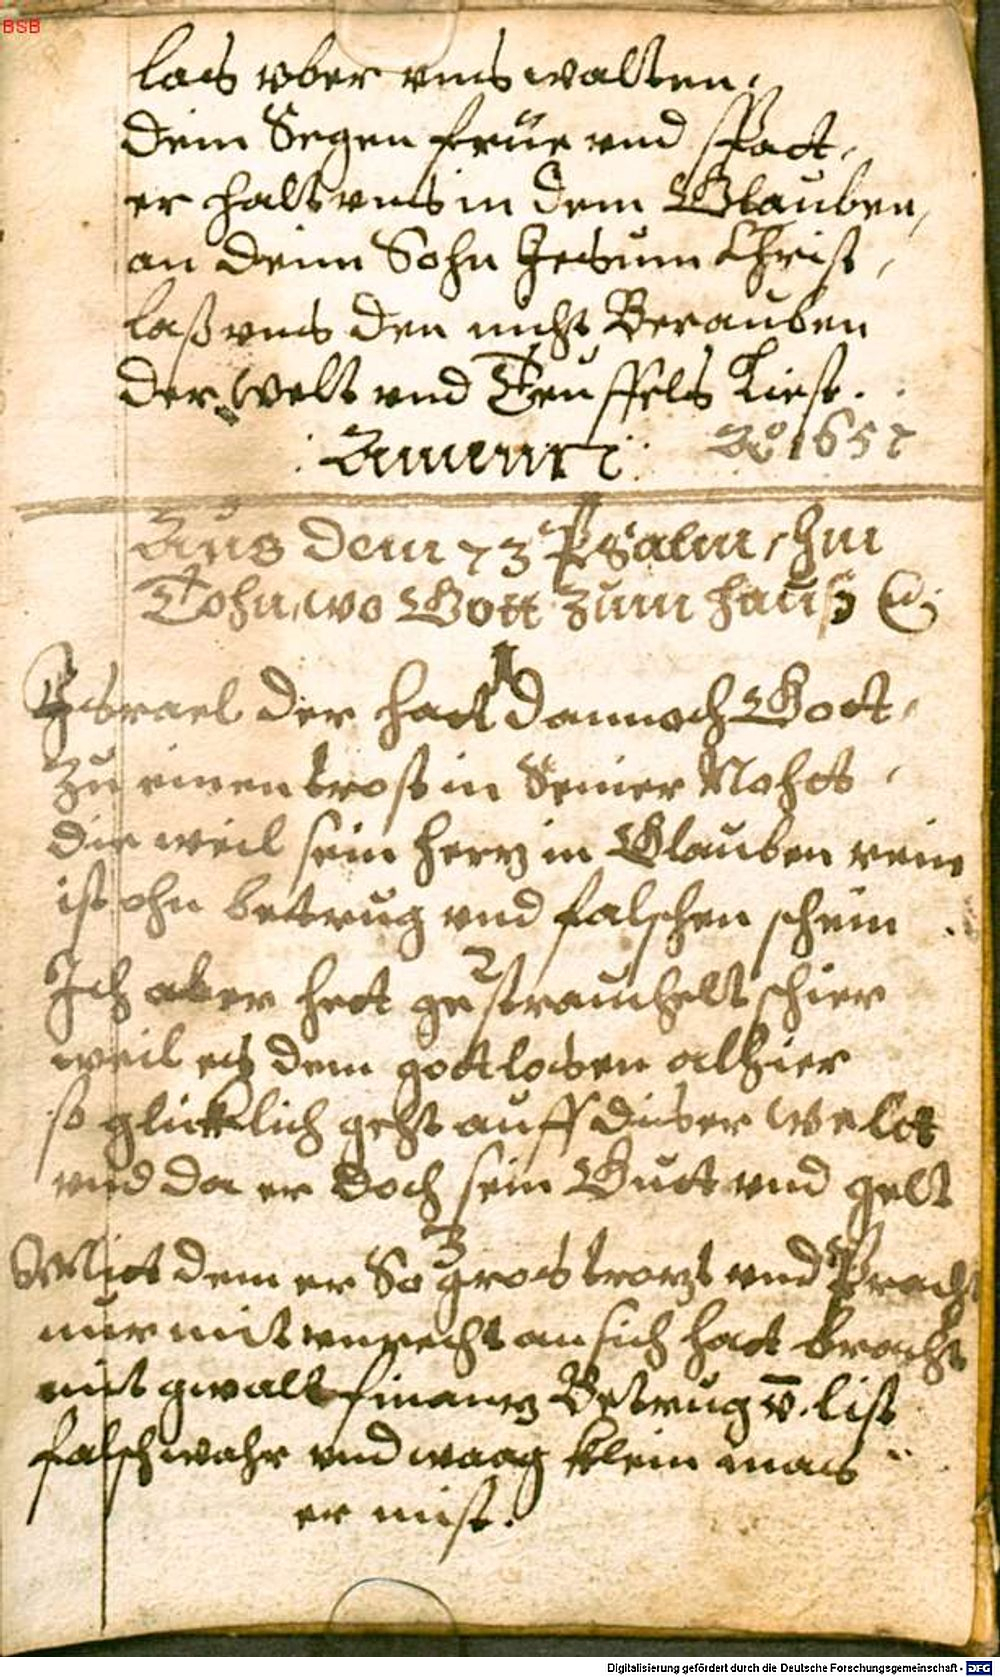 BSB
las vber vns walten,
dein Segen früe vnd spatt,
er halt vns in dem Glauben,
an deim Sohn Jesum Christ,
laß vns den nicht Berauben
der Welt vnd Teuffels List.
Amen Aō 1657
Aus dem 73 Psalm, Im
Tohn, wo Gott zum hauß &
1
Jsrael der hatt dannoch Gott,
zu einen trost in Seiner Noht
die weil sein herz in Glauben rein
ist ohn betrug vnd falschen schein
2
Jch aber hett gestrauchelt schier
weil es dem gottlosen alhier
so glicklich geht auff diser Weltt
vnd da er doch sein Gutt vnd gelt
3
Mitt dem er So gros trozt vnd Pracht
nur mit vnrecht an sich hatt bracht
mit gwalt finanz Betrug v̄. list
falsch wahr vnd waag klein mas
er mist.
Digitalisierung gefördert durch die Deutsche Forschungsgemeinschaft - DFG